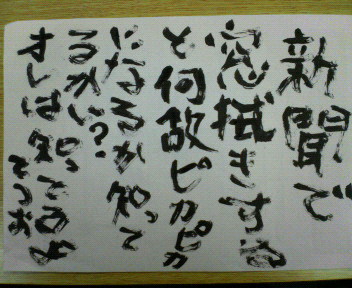 新聞で
窓拭きする
と何故ピカピカ
になるか知って
るかい?
オレは知ってるよ
そっお